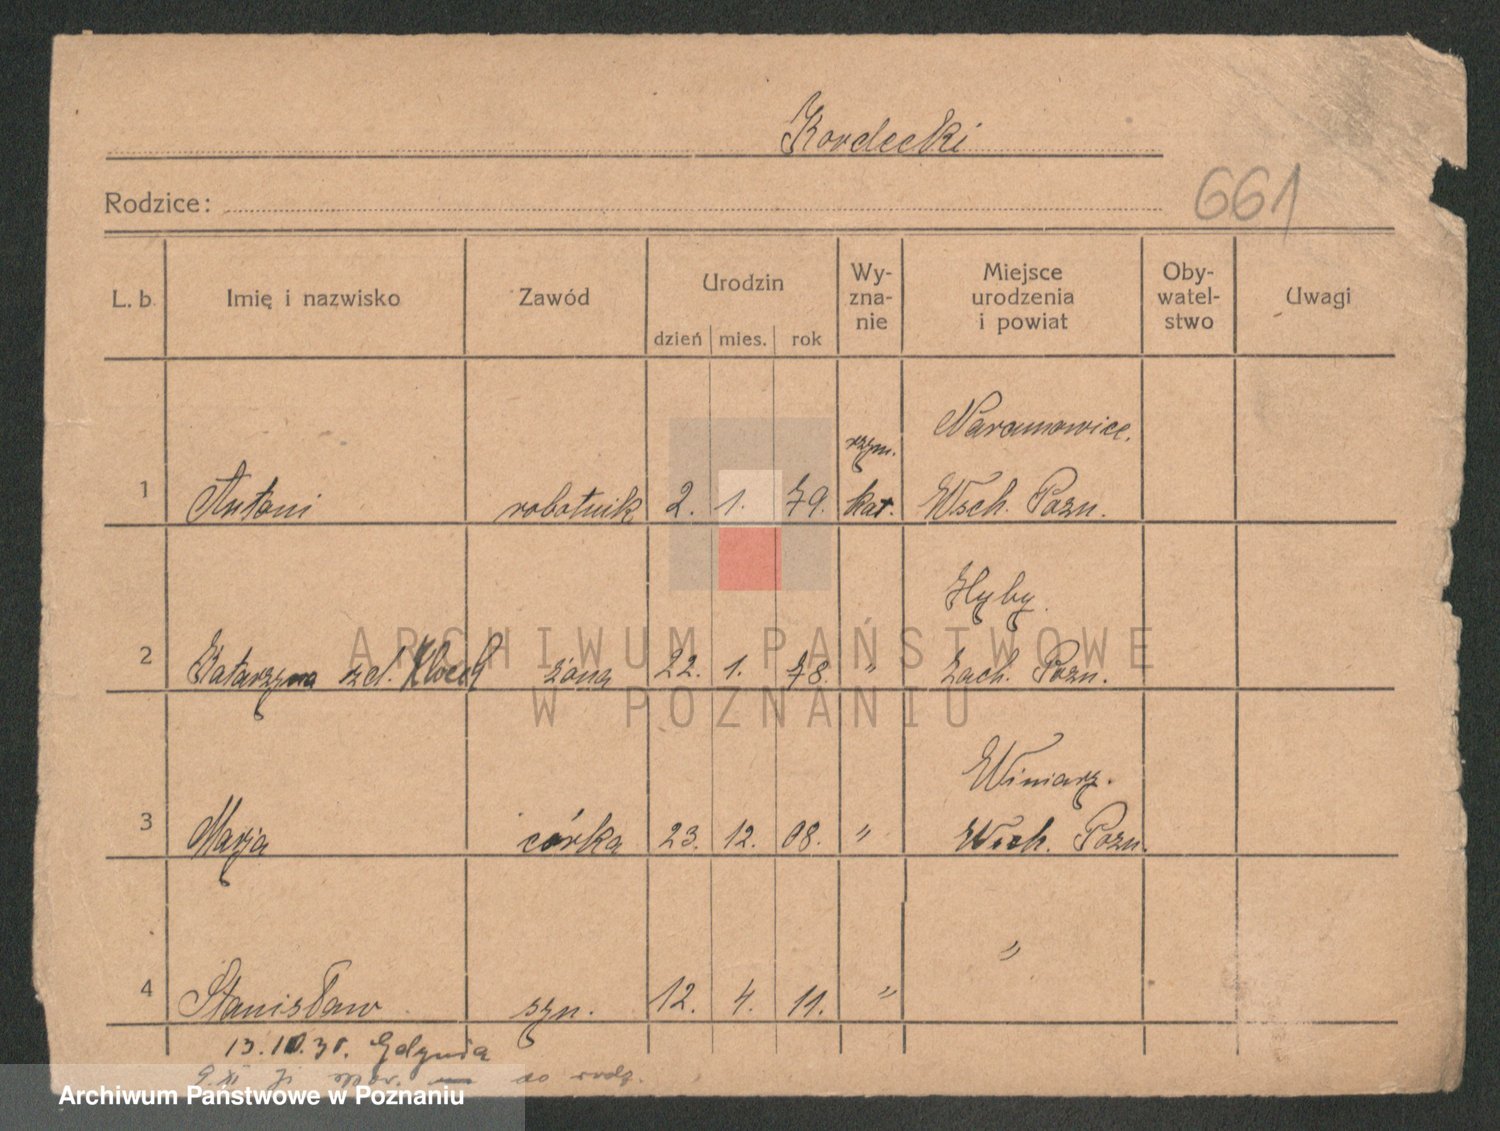 Kordecki
661
Rodzice:
L. b. Imię i nazwisko Zawód Urodzin Wy-zna-nie Miejsce urodzenia i powiat Oby-watel-stwo Uwagi
dzień mies. rok
Naramowice.
rzym.
1 Antoni robotnik 2. 1. 79. kat. Wsch. Pozn.
2 Katarzyna żona 22. 1. 78. " Zach. Pozn.
ARCHIWUM PAŃSTWOWE
W POZNANIU
Winiarz.
3 Marja córka 23. 12. 08. " Wsch. Pozn.
"
4 Stanisław syn. 12. 4. 11. "
Gdynia
do rodz.
Archiwum Państwowe w Poznaniu